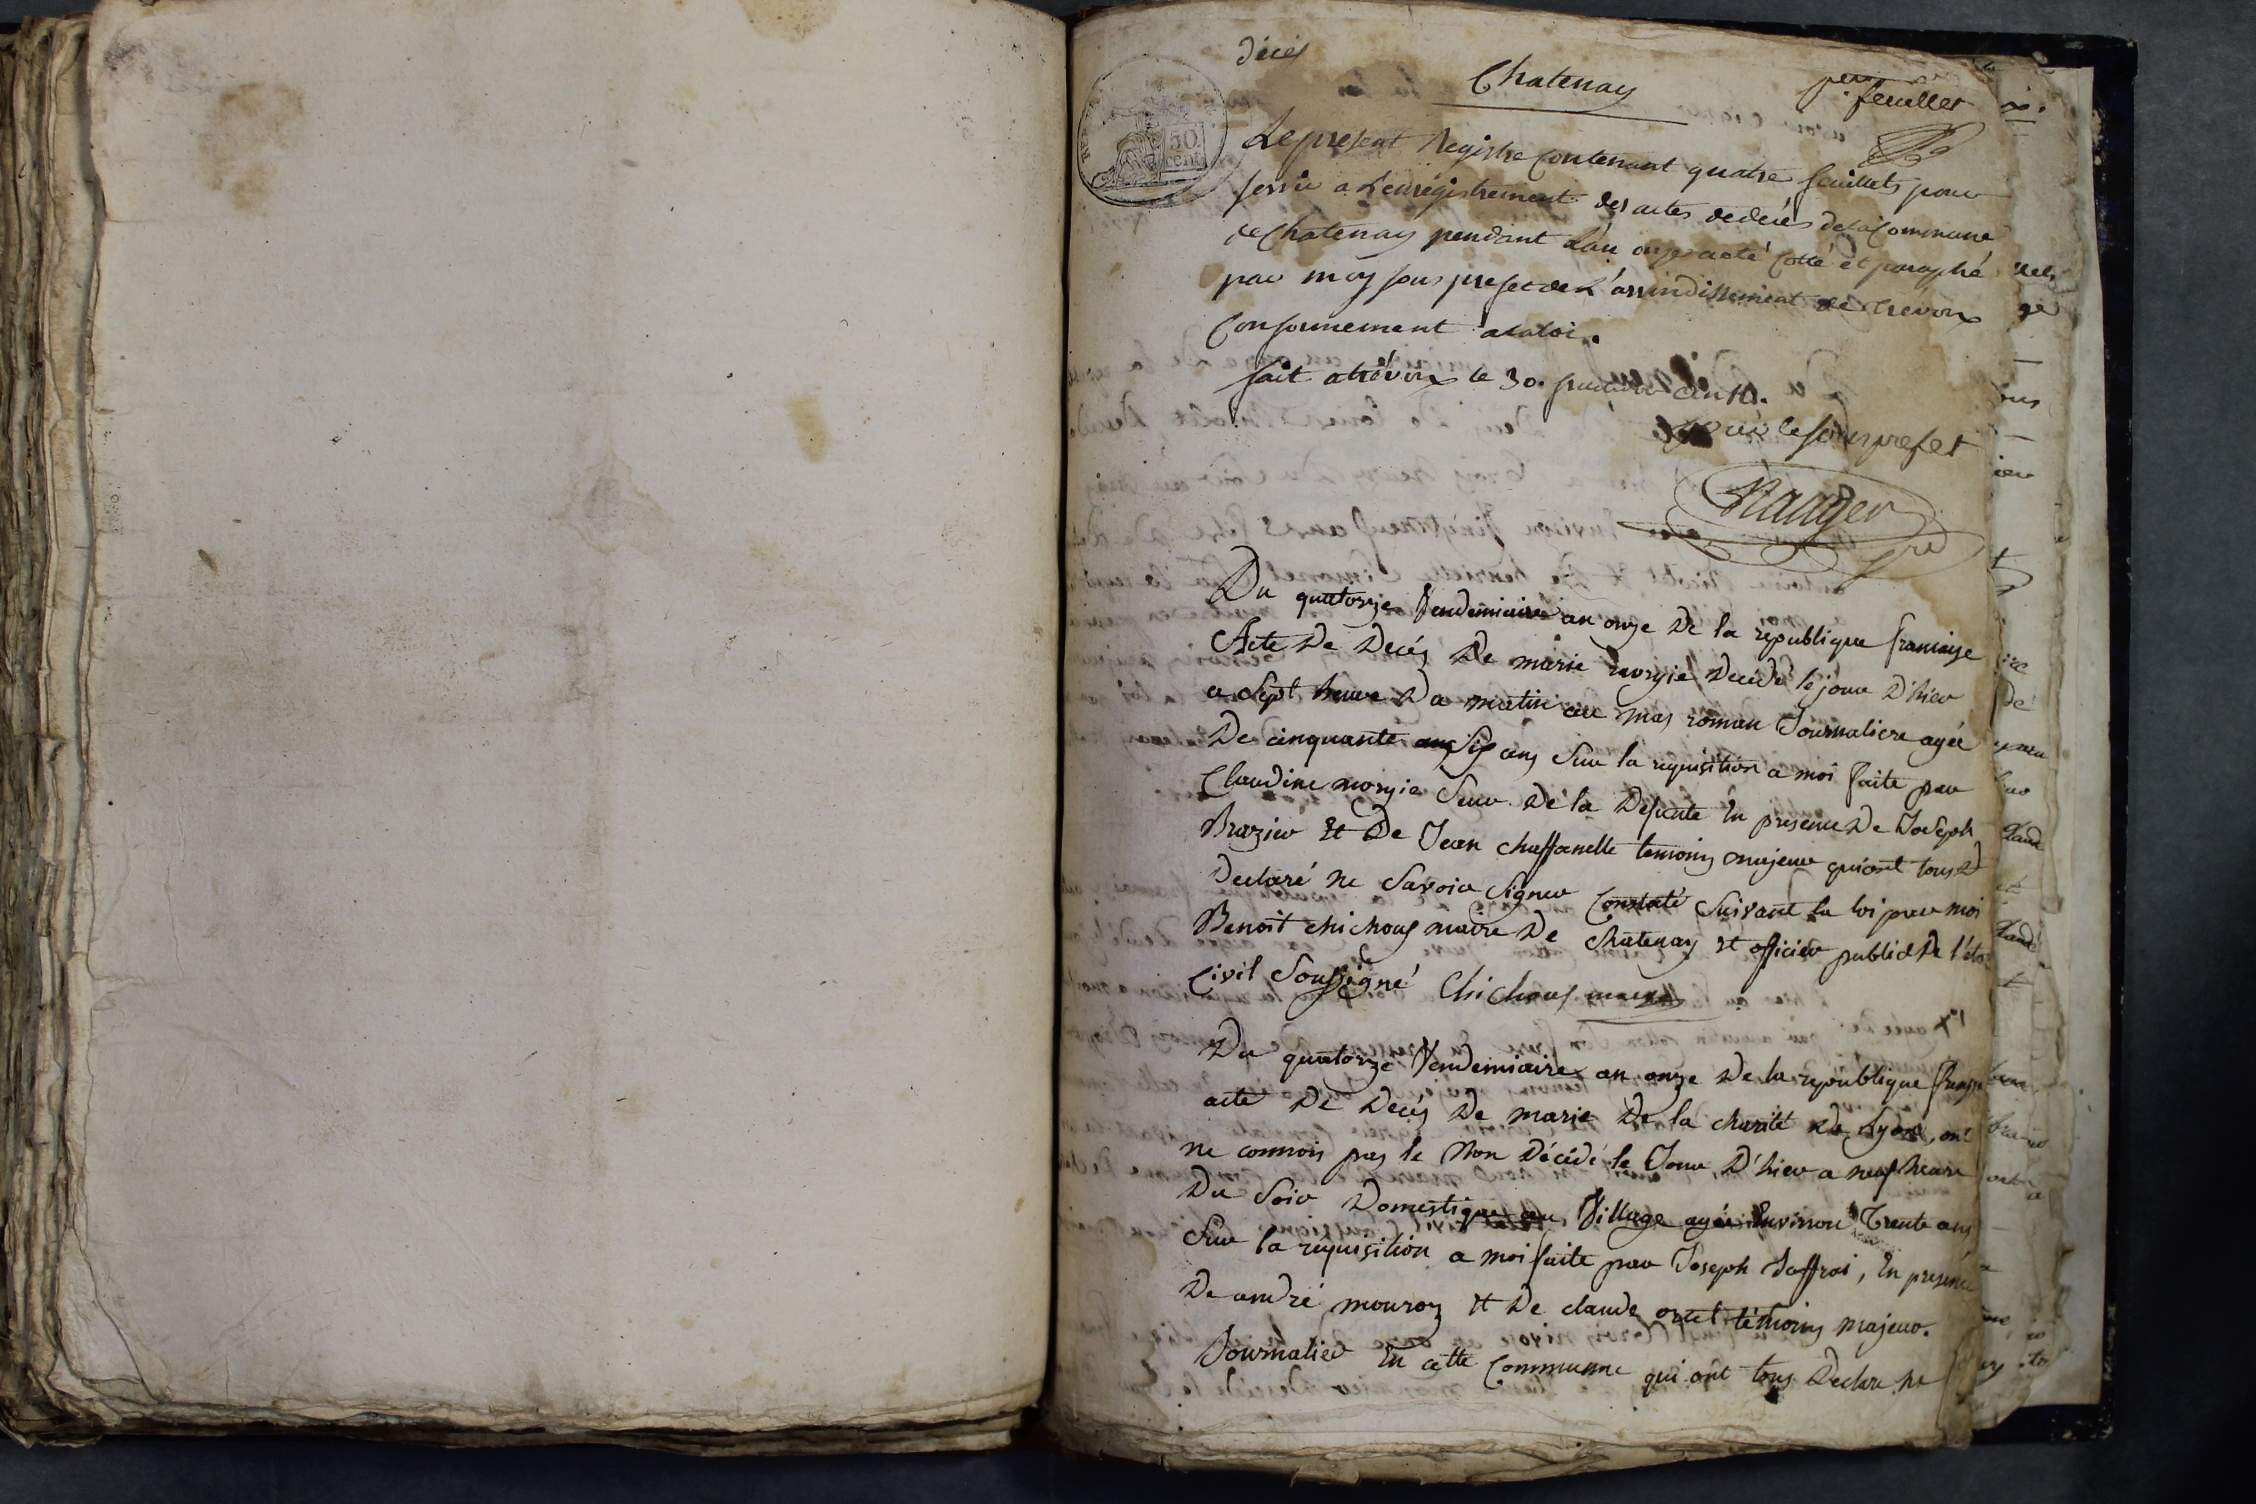 décès
Chatenay
per feuillet
50 cent
Le present Registre Contenant quatre feuillets pour
servir a L'enregistrement des actes de décès de la Commune
de Chatenay pendant L'an onze a eté Cotté et paraphé
par moy sous prefet de L'arrondissement de Trevoux
Conformement a la loi.
fait a trévoux le 30. fructidor an 10.
pour le sous prefet
Du quatorze Vendemiaire an onze De la republique francaise
Acte De Decés De marie morgié Decedé le jour D'hier
a Sept heure Du matin au mas roman Journaliere agée
De cinquante six ans Sur la requisition a moi faite par
Claudine morgie Seur De la Defunte En presence De Joseph
Brazier Et De Jean chaffanelle temoins majeur qui ont tous D
Declaré ne Savoir Signer Constaté Suivant la loi par moi
Benoit chichoux maire De Chatenay et officier public De l'état
Civil Soussigné Chichoux maire
Du quatorze Vendemiaire an onze De la republique
acte De Decés De marie De la charité De Lyon, ont
ne connois pas le Non Décédé le Jour D'hier a neuf heure
Du Soir Domestique au Village agée Environ Trente ans
Sur la requisition a moi faite par Joseph Joffrai, En presence
De andré mouron Et De claude ortel témoins majeur.
Journalier En cette Commune qui ont tous Declare ne